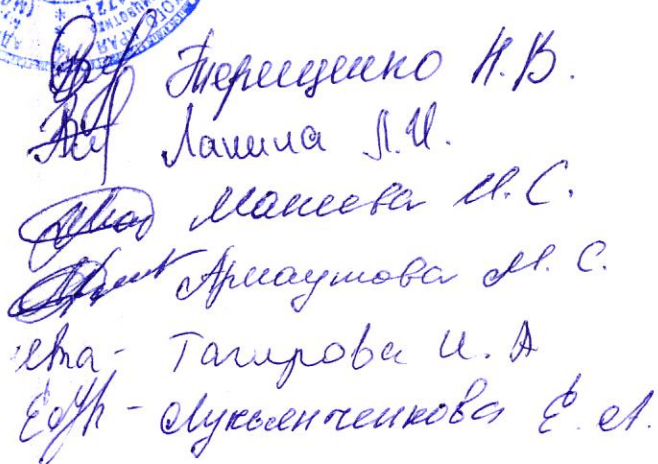 Терещенко Н.В.
Лапина Л.И.
Макеева М.С.
Арнаутова М.С.
Тагирова И.А
Лукьянченкова Е.А.